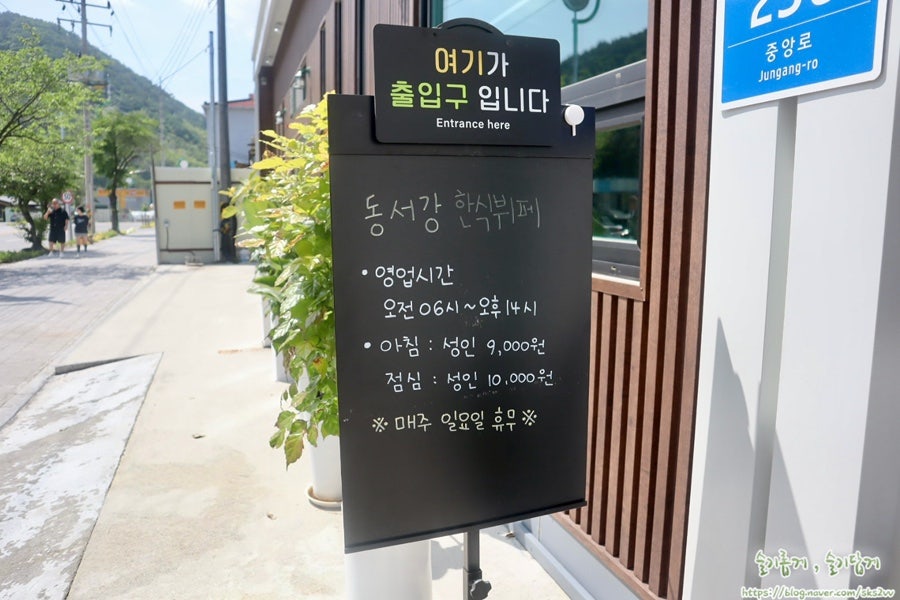 여기가
출입구 입니다
Entrance here
동서강 한식뷔페
• 영업시간
오전 06시 ~ 오후 14시
• 아침 : 성인 9,000원
점심 : 성인 10,000원
※ 매주 일요일 휴무 ※
중앙로
Jungang-ro
슬기롭게, 슬기답게
https://blog.naver.com/sks2vv